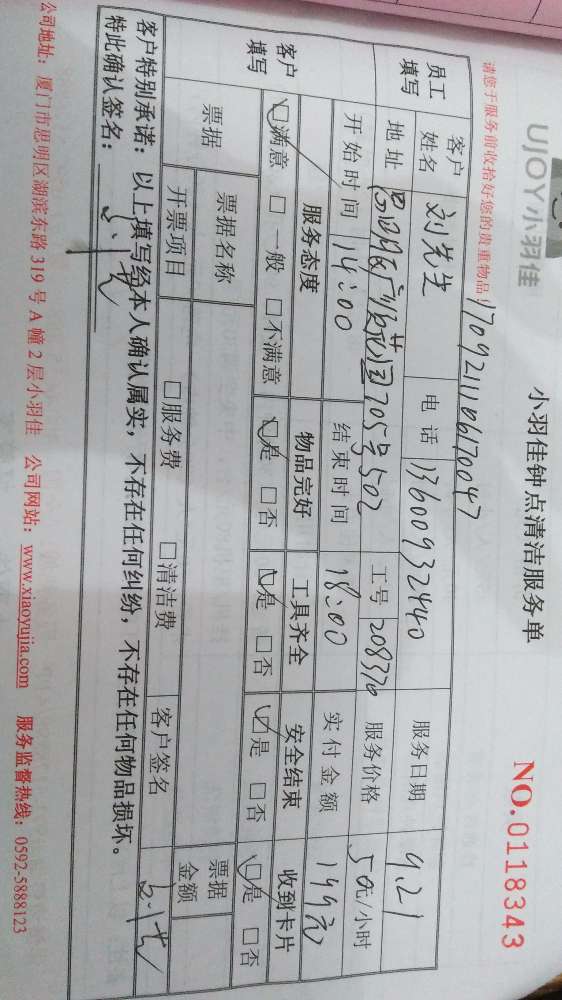 UJOY小羽佳
小羽佳钟点清洁服务单
NO.0118343
请您于服务前收拾好您的贵重物品！
1709211106170047
员工填写
客户姓名 刘先生 电话 13600932440 服务日期 9.21
地址 705号502 工号 208370 服务价格 50元/小时
开始时间 14:00 结束时间 18:00 实付金额 199元
客户填写
服务态度 物品完好 工具齐全 安全结束 收到卡片
☑满意 □一般 □不满意 ☑是 □否 ☑是 □否 ☑是 □否 ☑是 □否
票据
票据名称 票据金额
开票项目 □服务费 □清洁费 客户签名
客户特别承诺：以上填写经本人确认属实，不存在任何纠纷，不存在任何物品损坏。
特此确认签名：
公司地址：厦门市思明区湖滨东路 319 号 A 幢 2 层小羽佳 公司网站：www.xiaoyujia.com 服务监督热线：0592-5888123